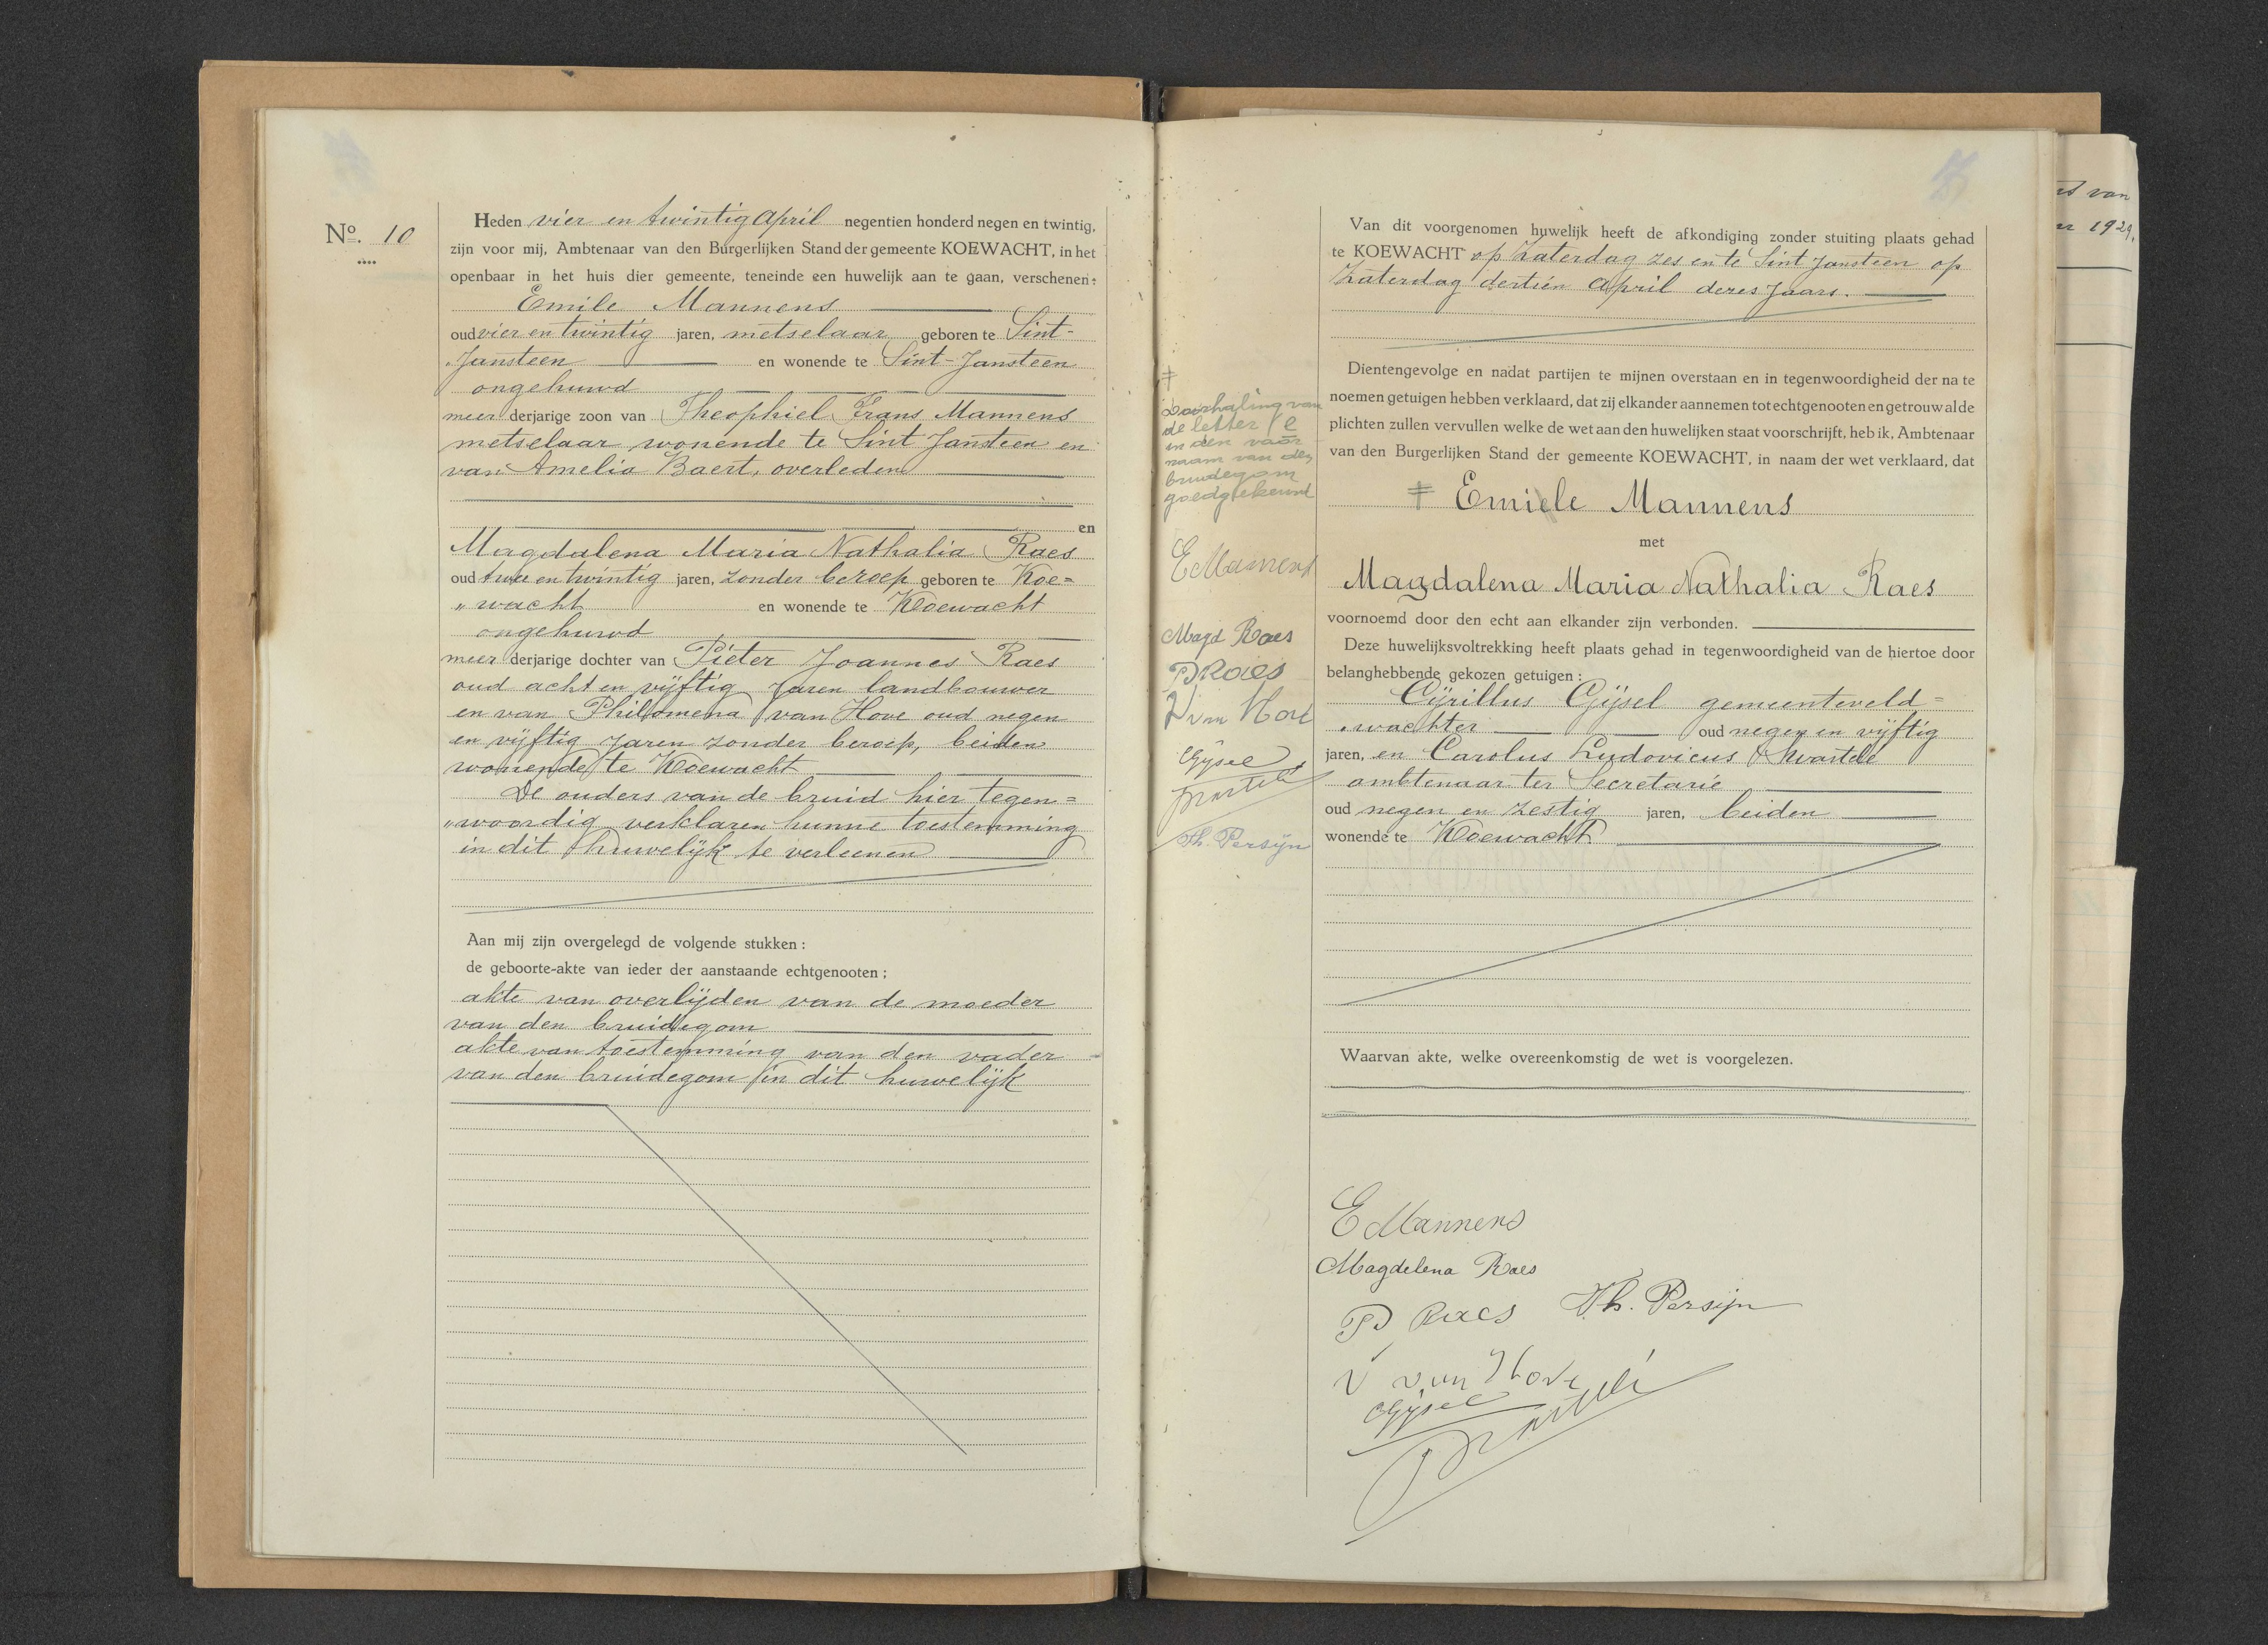 No. 10
Heden vier en twintig April negentien honderd negen en twintig,
zijn voor mij, Ambtenaar van den Burgerlijken Stand der gemeente KOEWACHT, in het
openbaar in het huis dier gemeente, teneinde een huwelijk aan te gaan, verschenen:
Emile Mannens
oud vier en twintig jaren, metselaar geboren te Sint-
Jansteen en wonende te Sint-Jansteen
ongehuwd
meerderjarige zoon van Theophiel Frans Mannens
metselaar wonende te Sint Jansteen en
van Amelia Baert, overleden
en
Magdalena Maria Nathalia Raes
oud twee en twintig jaren, zonder beroep geboren te Koe=
"wacht en wonende te Koewacht
ongehuwd
meerderjarige dochter van Pieter Joannes Raes
oud acht en vijftig jaren landbouwer
en van Philomena van Hove oud negen
en vijftig jaren zonder beroep, beiden
wonende te Koewacht
De ouders van de bruid hier tegen=
"woordig verklaren hunne toestemming
in dit huwelijk te verleenen
Aan mij zijn overgelegd de volgende stukken:
de geboorte-akte van ieder der aanstaande echtgenooten;
akte van overlijden van de moeder
van den bruidegom
akte van toestemming van den vader
van den bruidegom in dit huwelijk
Van dit voorgenomen huwelijk heeft de afkondiging zonder stuiting plaats gehad
te KOEWACHT op Zaterdag zes en te Sint Jansteen op
Zaterdag dertien April dezes jaars.
Dientengevolge en nadat partijen te mijnen overstaan en in tegenwoordigheid der na te
noemen getuigen hebben verklaard, dat zij elkander aannemen tot echtgenooten en getrouw al de
plichten zullen vervullen welke de wet aan den huwelijken staat voorschrijft, heb ik, Ambtenaar
van den Burgerlijken Stand der gemeente KOEWACHT, in naam der wet verklaard, dat
≠ Emiele Mannens
met
Magdalena Maria Nathalia Raes
voornoemd door den echt aan elkander zijn verbonden.
Deze huwelijksvoltrekking heeft plaats gehad in tegenwoordigheid van de hiertoe door
belanghebbende gekozen getuigen:
Cyrillus Gijsel gemeenteveld=
"wachter oud negen en vijftig
jaren, en Carolus Ludovicus
ambtenaar ter Secretarie
oud negen en zestig jaren, beiden
wonende te Koewacht
Waarvan akte, welke overeenkomstig de wet is voorgelezen.
E Mannens
Magdelena Raes
P Raes Th. Persijn
van Hove
Gijsel
≠
Doorhaling van
de letter e
in den voor
naam van den
bruidegom
goedgekeurd
E Mannens
Magd Raes
P Raes
van Hove
Gijsel
Th. Persijn
van
1929,